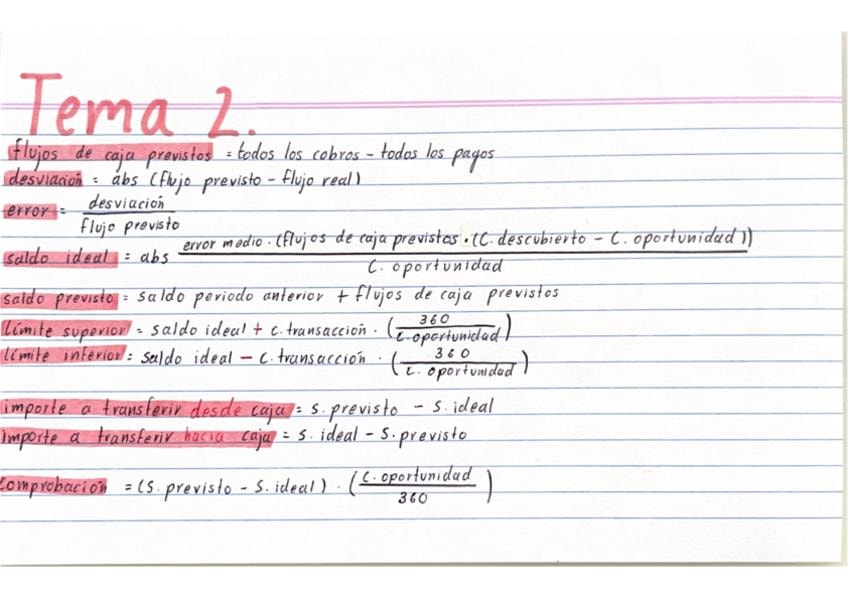 Tema 2.
flujos de caja previstos = todos los cobros - todos los pagos
desviación = abs (flujo previsto - flujo real)
error = desviación / flujo previsto
saldo ideal = abs error medio · (flujos de caja previstos · (C. descubierto - C. oportunidad)) / C. oportunidad
saldo previsto = saldo periodo anterior + flujos de caja previstos
límite superior = saldo ideal + c. transacción · (360 / c. oportunidad)
límite inferior = saldo ideal - c. transacción · (360 / c. oportunidad)
importe a transferir desde caja = s. previsto - s. ideal
importe a transferir hacia caja = s. ideal - s. previsto
Comprobación = (s. previsto - s. ideal) · (c. oportunidad / 360)